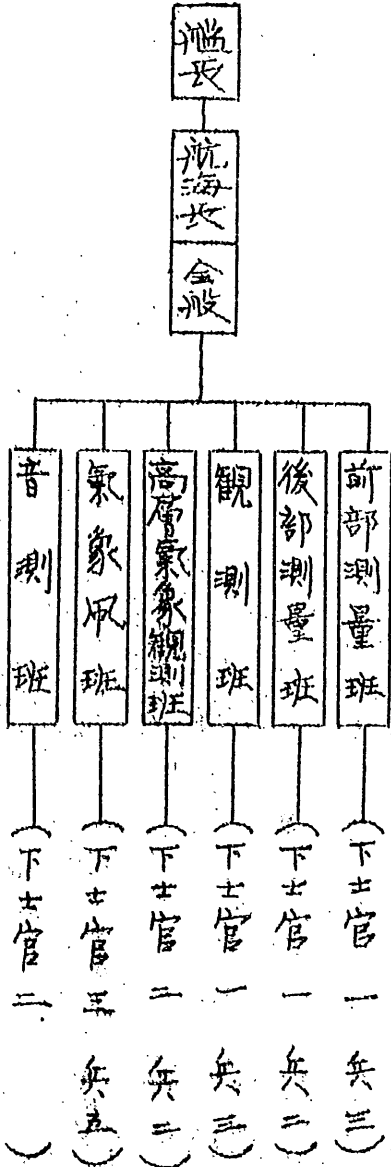 艦長
航海長
全般
前部測量班
後部測量班
観測班
高層氣象観測班
氣象班
音測班
(下士官 一 兵三)
(下士官 一 兵二)
(下士官 一 兵三)
(下士官 二 兵三)
(下士官 五 兵五)
(下士官 二 )